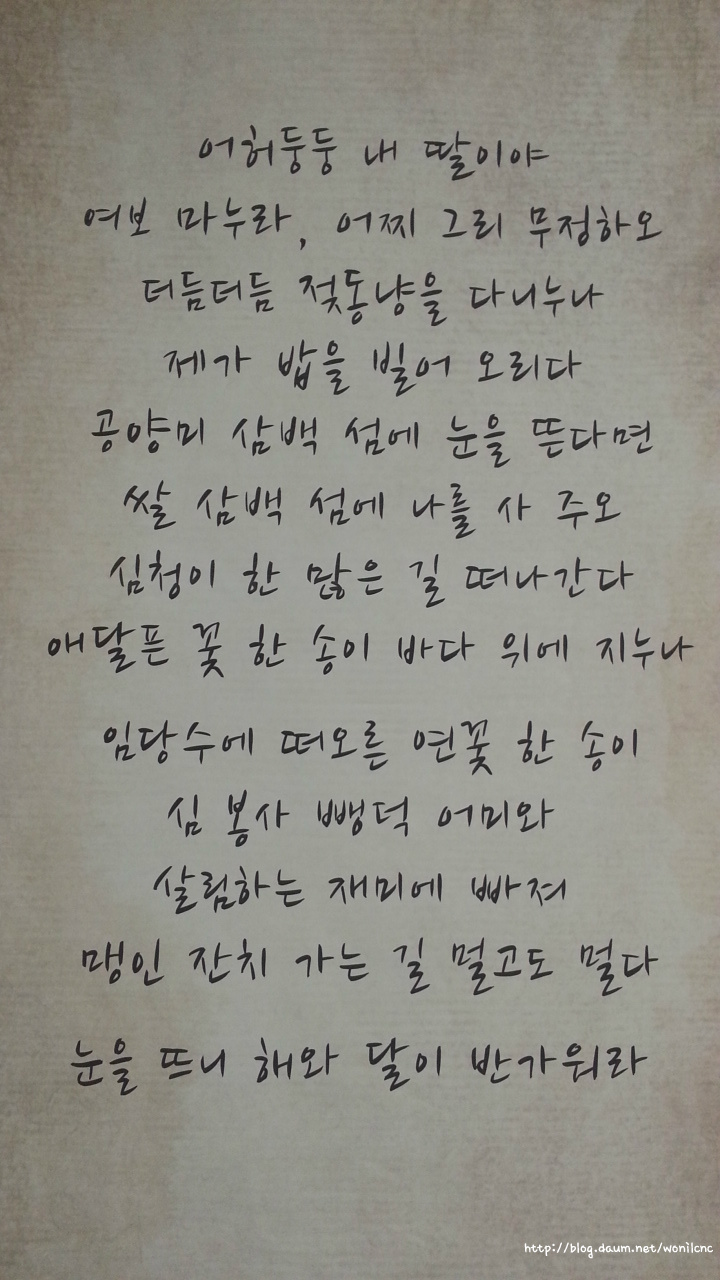 어허둥둥 내 딸이야
여보 마누라, 어찌 그리 무정하오
더듬더듬 젖동냥을 다니누나
제가 밥을 빌어 오리다
공양미 삼백 섬에 눈을 뜬다면
쌀 삼백 섬에 나를 사 주오
심청이 한 많은 길 떠나간다
애달픈 꽃 한 송이 바다 위에 지누나
임당수에 떠오른 연꽃 한 송이
심 봉사 뺑덕 어미와
살림하는 재미에 빠져
맹인 잔치 가는 길 멀고도 멀다
눈을 뜨니 해와 달이 반가워라
http://blog.daum.net/wonilcnc